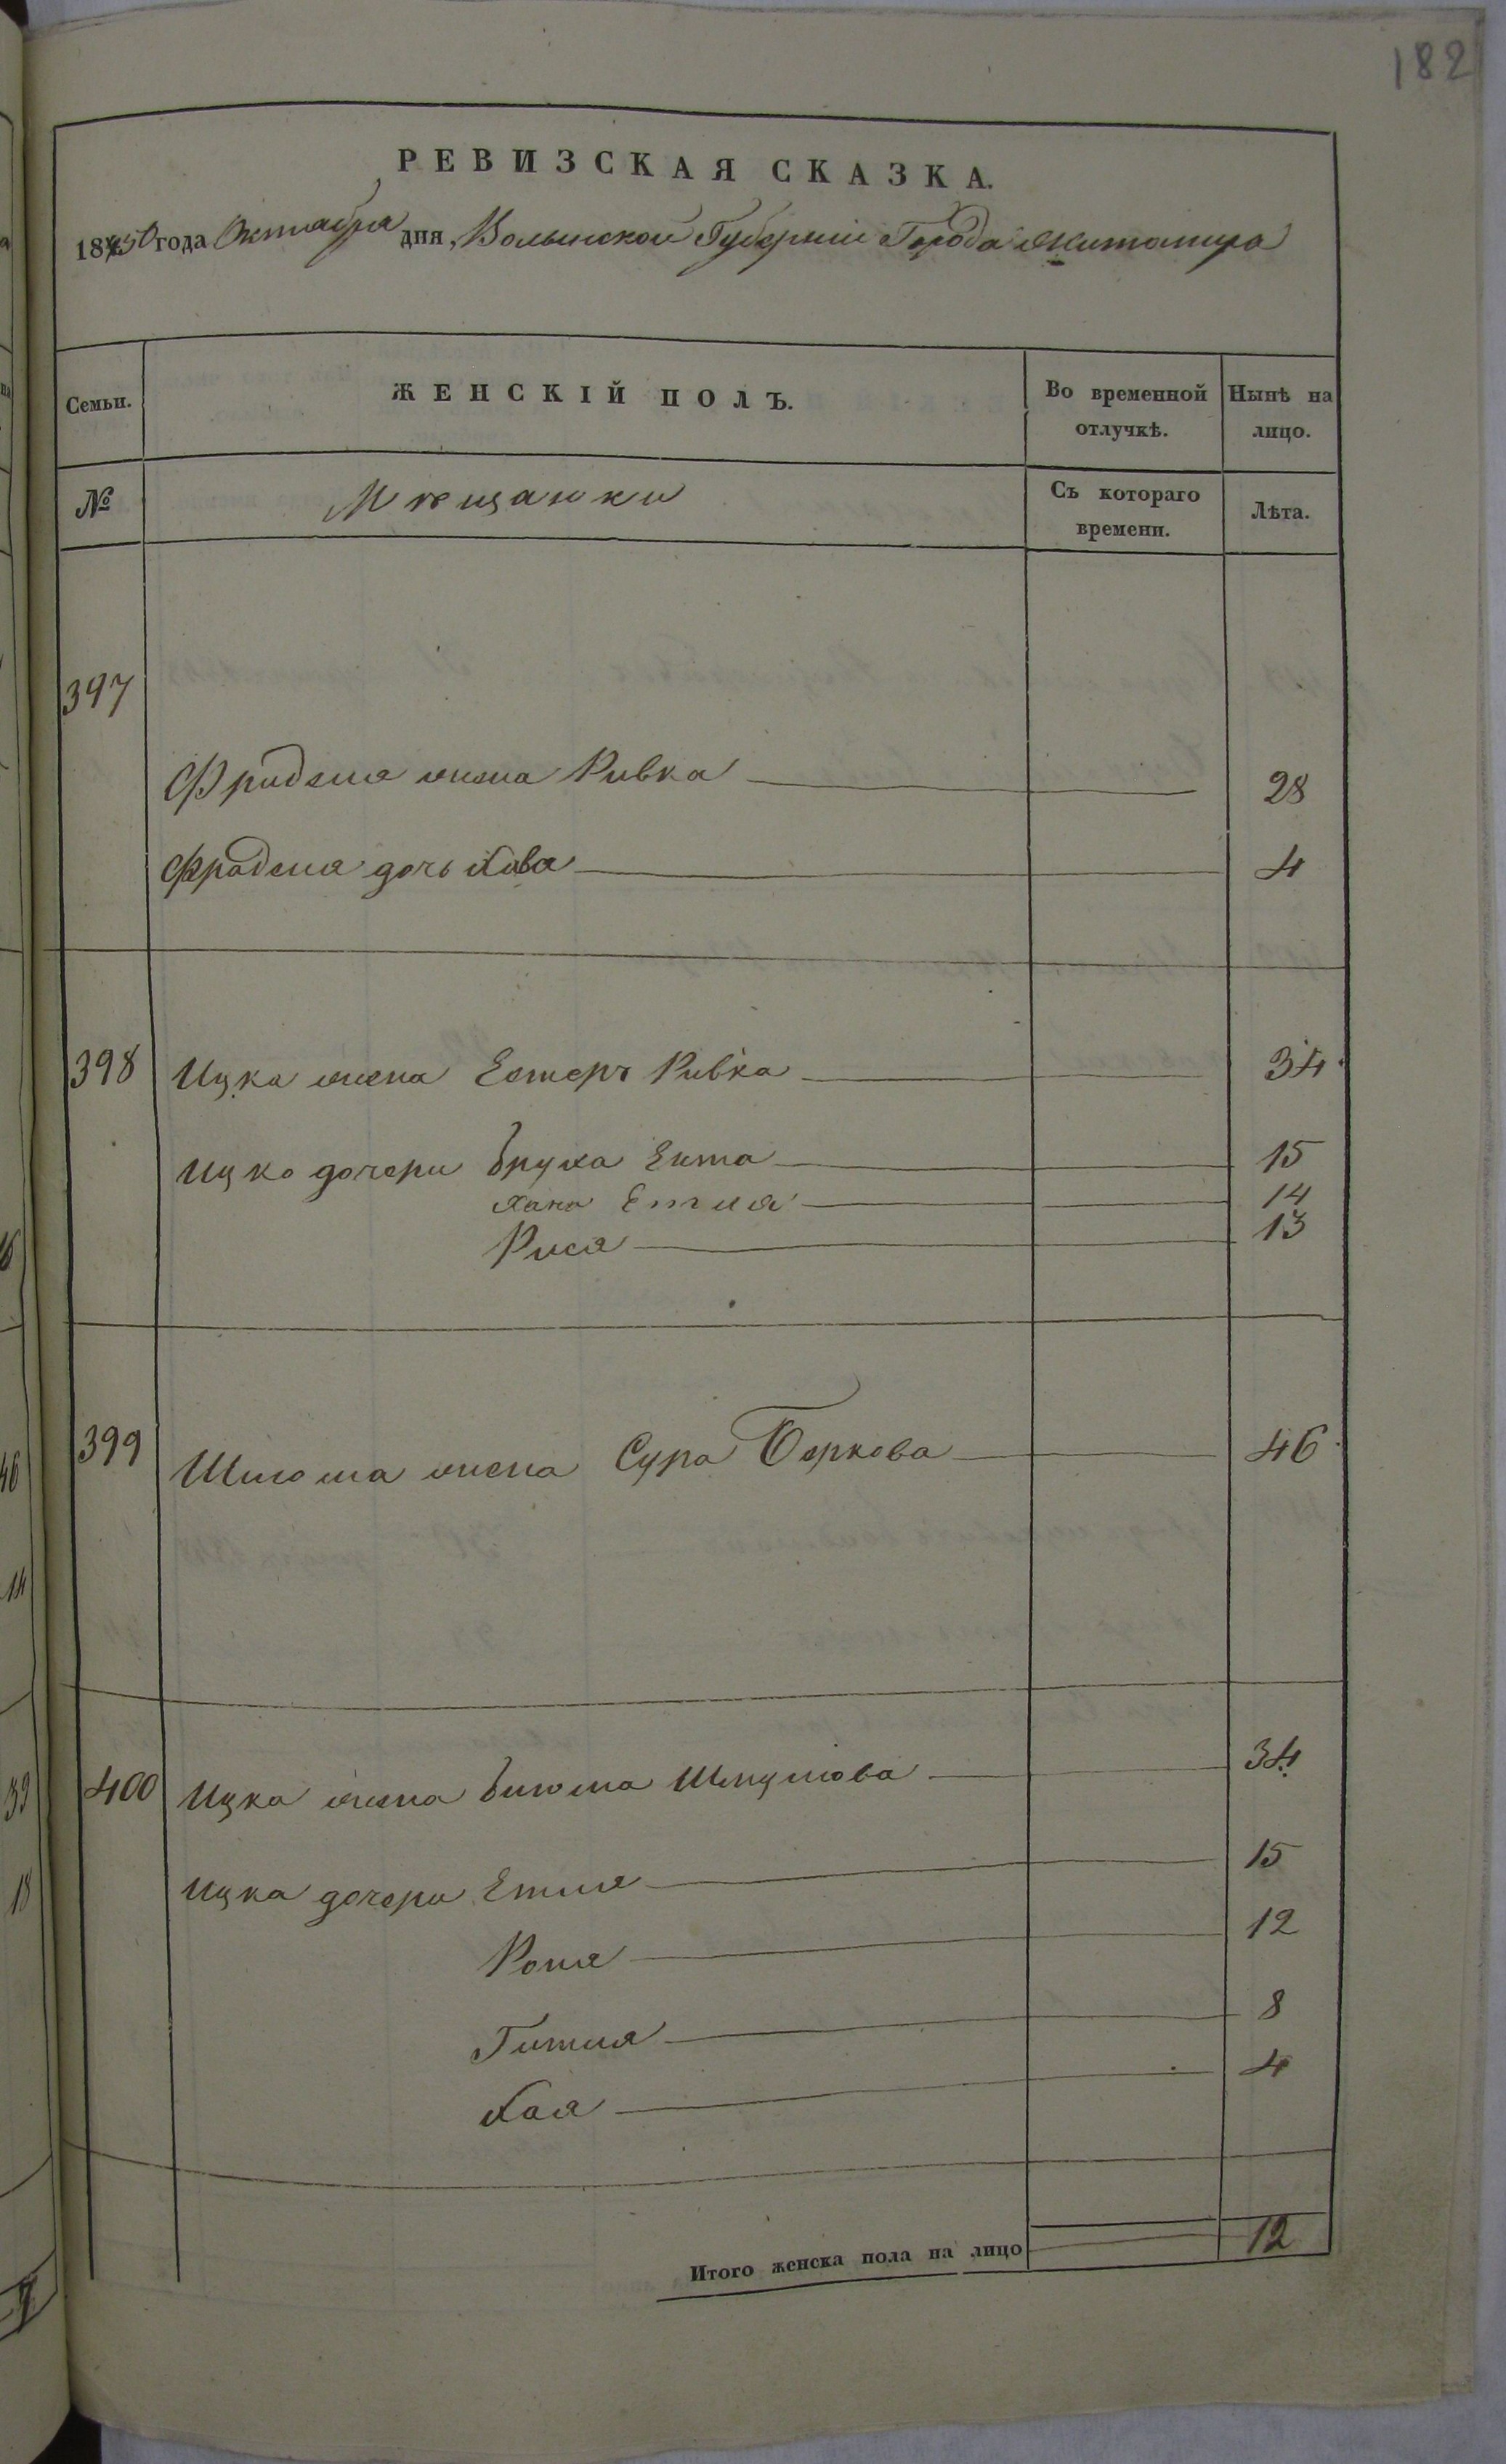 182
РЕВИЗСКАЯ СКАЗКА.
1850 года Октября дня, Волынской Губерніи Города Житомира
Семьи.
ЖЕНСКІЙ ПОЛЪ.
Во временной отлучкѣ.
Нынѣ на лицо.
№
Мѣщанки
Съ котораго времени.
Лѣта.
397
Фриделя жена Ривка 28
Фраделя дочь Хава 4
398 Ицка жена Естеръ Ривка 34
Ицка дочери Бруха Ента 15
Хана Етля 14
Рися 13
399 Шлома жена Сура Беркова 46
400 Ицка жена Блюма Шмулова 34
Ицка дочери Етля 15
Роня 12
Гитля 8
Хая 4
Итого женска пола на лицо 12